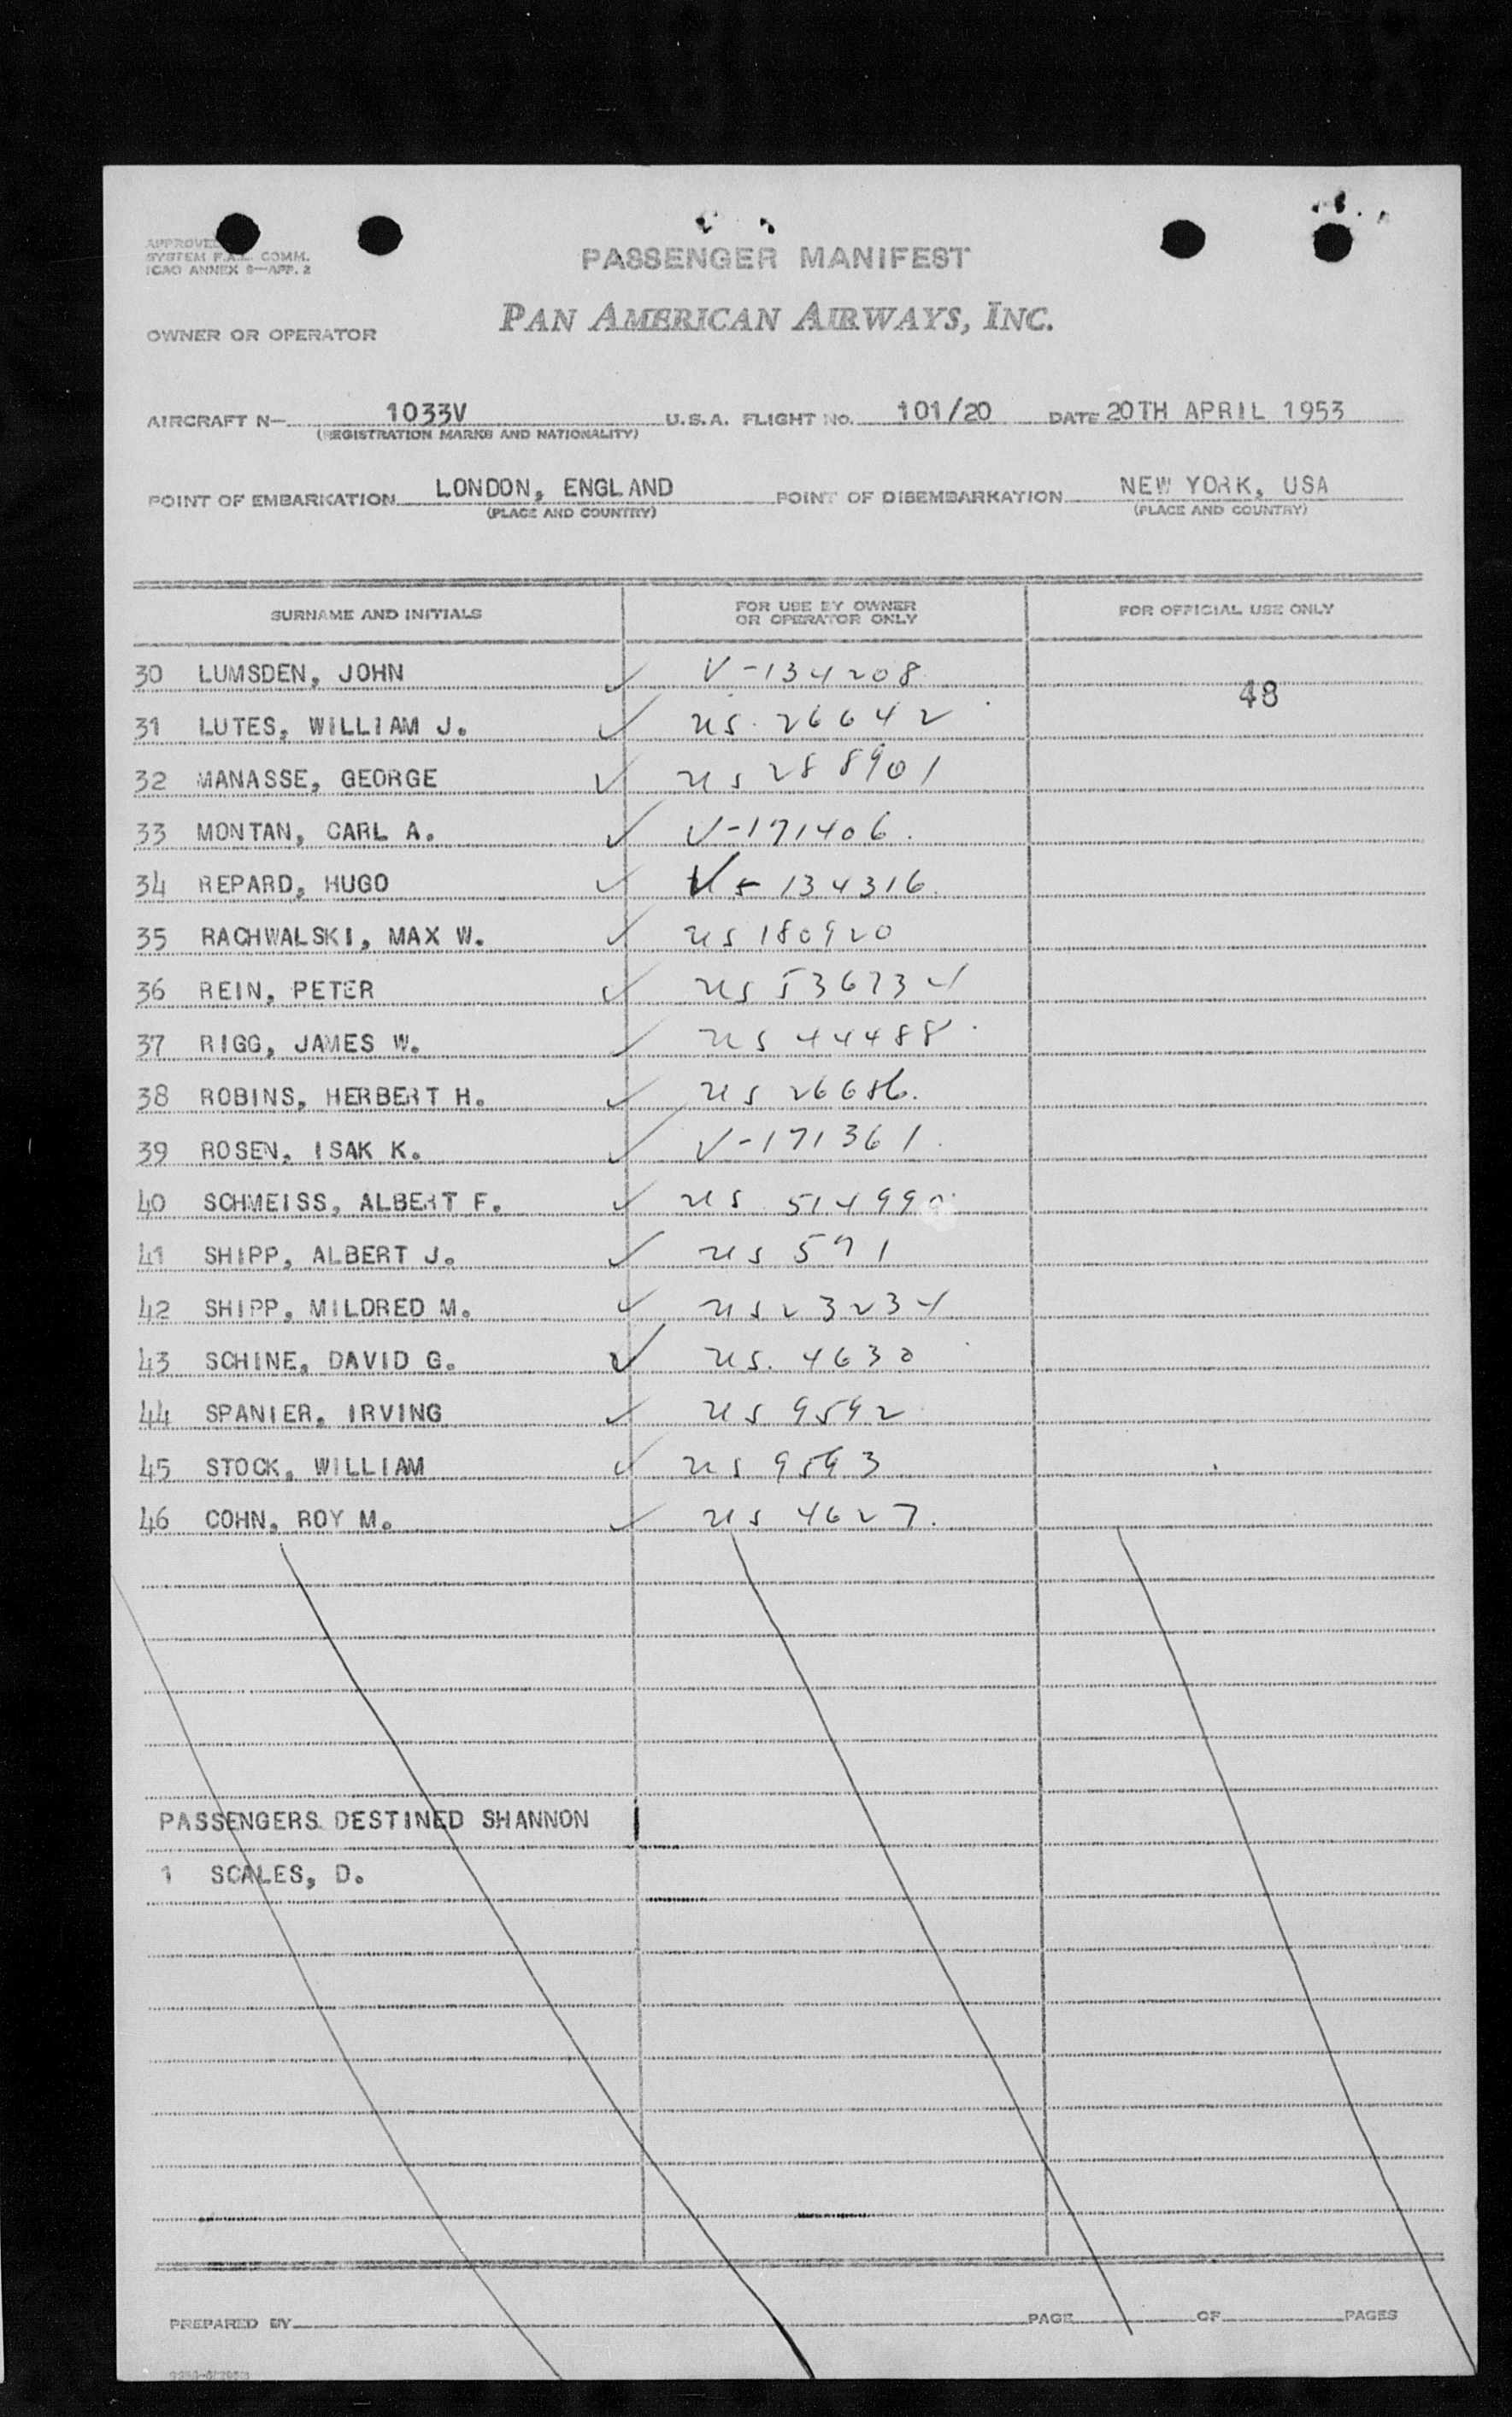 APPROVED
SYSTEM F.A.L. COMM.
ICAO ANNEX 9—APP. 2
PASSENGER MANIFEST
PAN AMERICAN AIRWAYS, INC.
OWNER OR OPERATOR
AIRCRAFT N— 1033V U.S.A. FLIGHT NO. 101/20 DATE 20TH APRIL 1953
(REGISTRATION MARKS AND NATIONALITY)
POINT OF EMBARKATION LONDON, ENGLAND POINT OF DISEMBARKATION NEW YORK, USA
(PLACE AND COUNTRY) (PLACE AND COUNTRY)
SURNAME AND INITIALS FOR USE BY OWNER OR OPERATOR ONLY FOR OFFICIAL USE ONLY
30 LUMSDEN, JOHN ✓ V-134208
48
31 LUTES, WILLIAM J. ✓ US. 26642
32 MANASSE, GEORGE ✓ US 288901
33 MONTAN, CARL A. ✓ V-171406.
34 REPARD, HUGO ✓ V- 134316.
35 RACHWALSKI, MAX W. ✓ US 180920
36 REIN, PETER ✓ US 536734
37 RIGG, JAMES W. ✓ US 44488
38 ROBINS, HERBERT H. ✓ US 26686.
39 ROSEN, ISAK K. ✓ V-171361.
40 SCHMEISS, ALBERT F. ✓ US 514990
41 SHIPP, ALBERT J. ✓ US 591
42 SHIPP, MILDRED M. ✓ US 23234
43 SCHINE, DAVID G. ✓ US. 4630
44 SPANIER, IRVING ✓ US 9592
45 STOCK, WILLIAM ✓ US 9593
46 COHN, ROY M. ✓ US 4627.
PASSENGERS DESTINED SHANNON
1 SCALES, D.
PREPARED BY PAGE OF PAGES